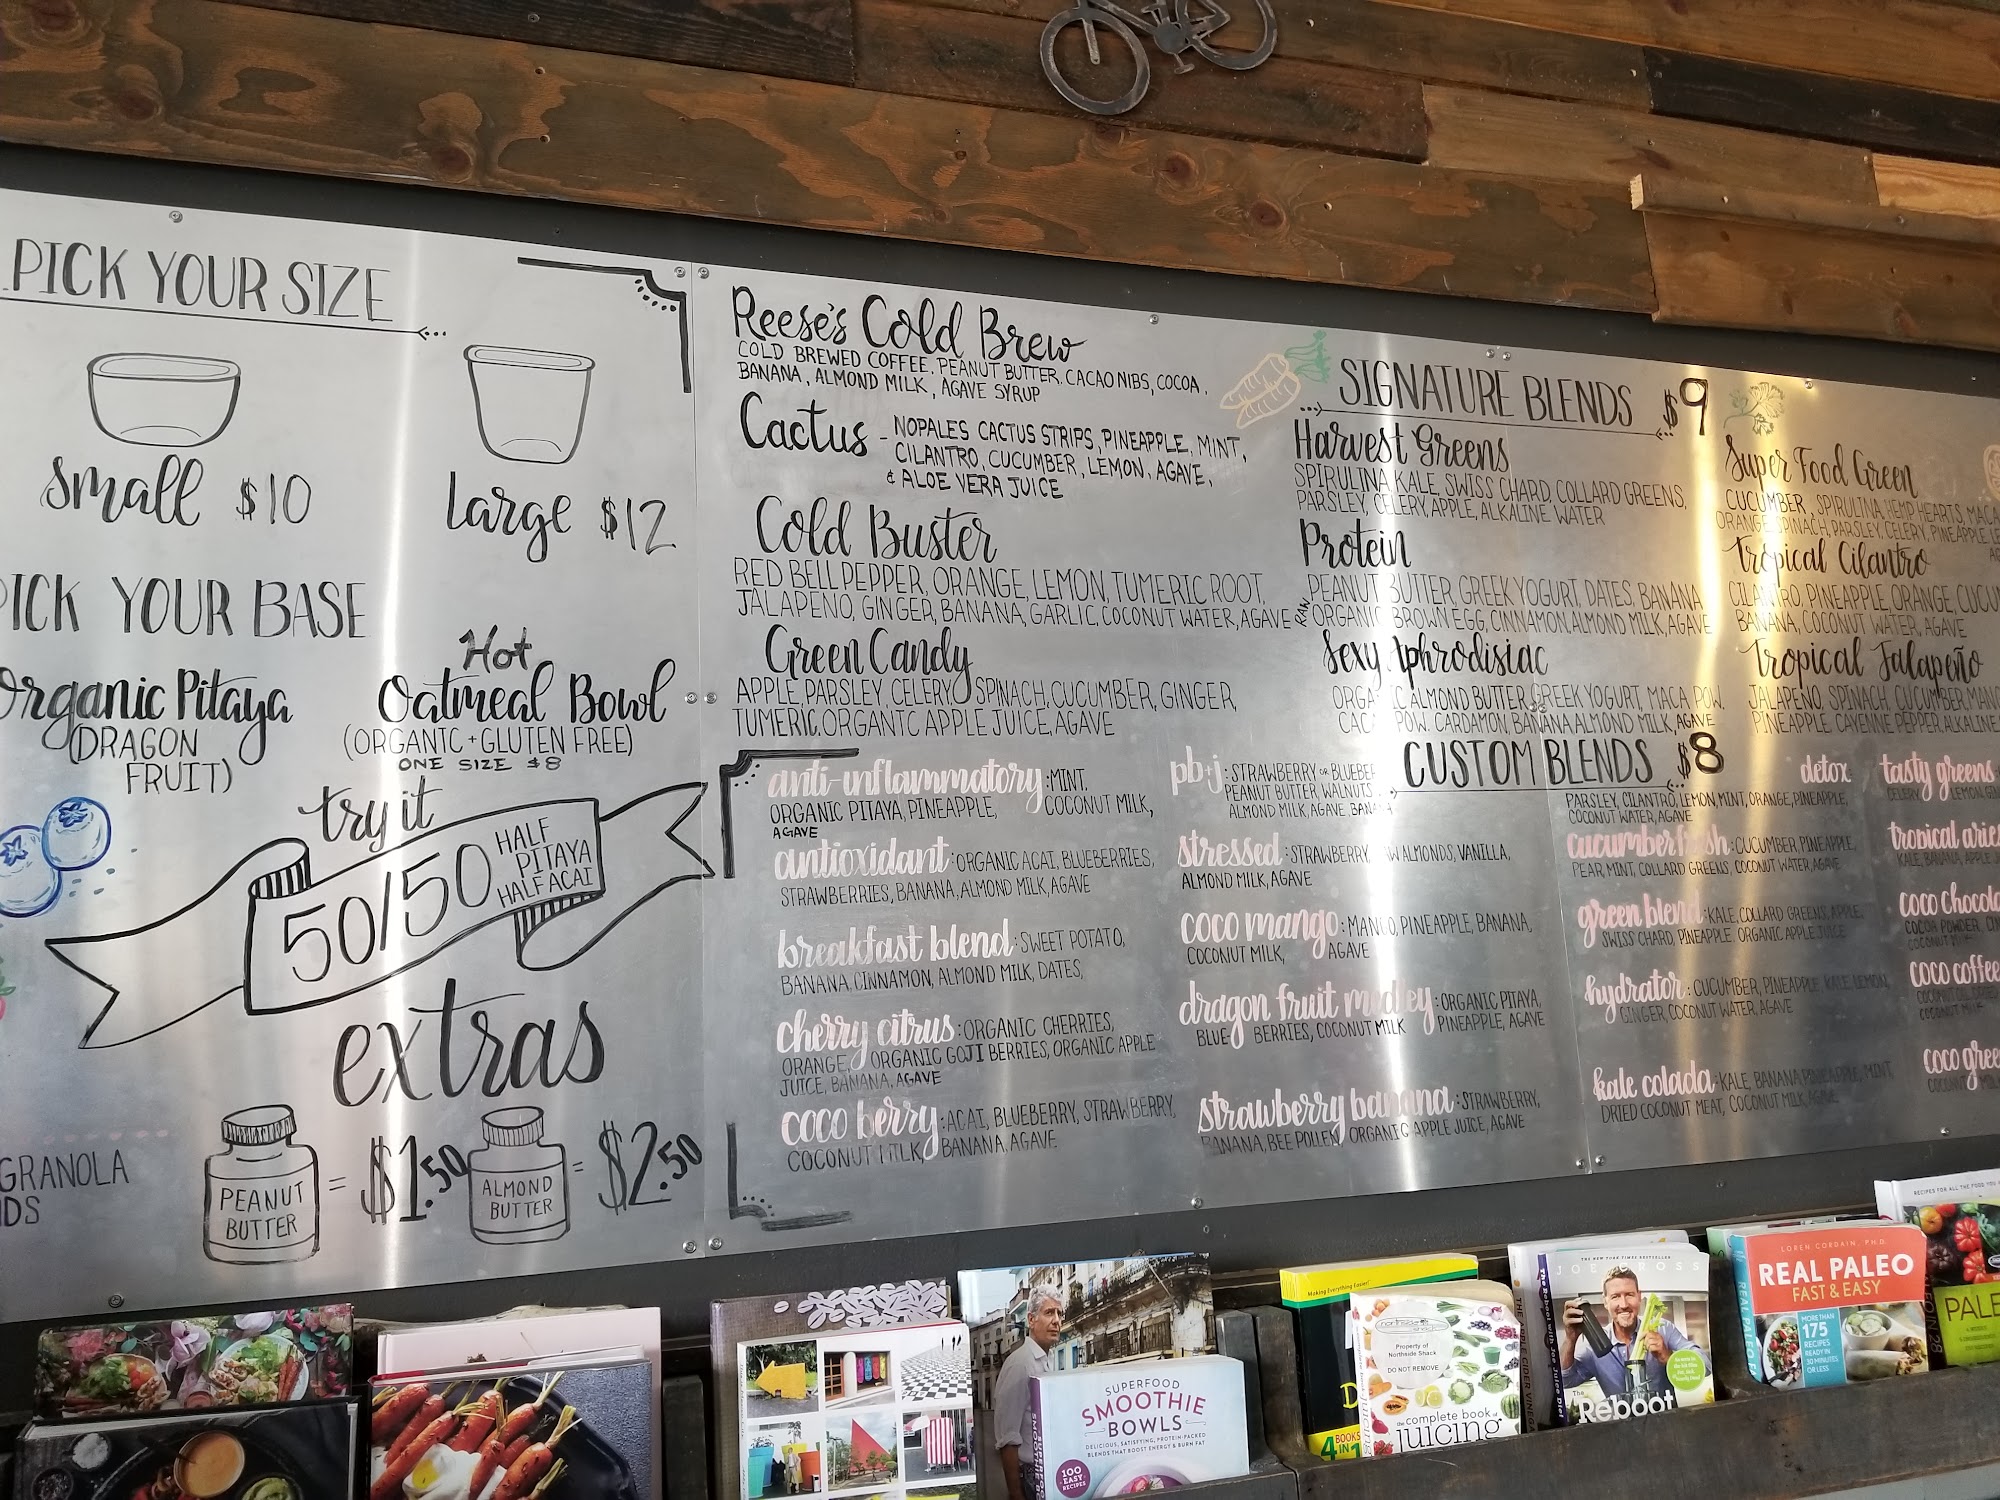 PICK YOUR SIZE
small $10
large $12
PICK YOUR BASE
Organic Pitaya
(DRAGON
FRUIT)
Hot
Oatmeal Bowl
(ORGANIC + GLUTEN FREE)
ONE SIZE $8
try it
50/50
HALF
PITAYA
HALF ACAI
extras
GRANOLA
PEANUT
BUTTER
= $1.50
ALMOND
BUTTER
= $2.50
Reese's Cold Brew
COLD BREWED COFFEE, PEANUT BUTTER, CACAO NIBS, COCOA,
BANANA, ALMOND MILK, AGAVE SYRUP
Cactus - NOPALES CACTUS STRIPS, PINEAPPLE, MINT,
CILANTRO, CUCUMBER, LEMON, AGAVE,
& ALOE VERA JUICE
Cold Buster
RED BELL PEPPER, ORANGE, LEMON, TUMERIC ROOT,
JALAPENO, GINGER, BANANA, GARLIC, COCONUT WATER, AGAVE
Green Candy
APPLE, PARSLEY, CELERY, SPINACH, CUCUMBER, GINGER,
TUMERIC, ORGANIC APPLE JUICE, AGAVE
SIGNATURE BLENDS $9
Harvest Greens
SPIRULINA, KALE, SWISS CHARD, COLLARD GREENS,
PARSLEY, CELERY, APPLE, ALKALINE WATER
Protein
PEANUT BUTTER, GREEK YOGURT, DATES, BANANA
RAW ORGANIC BROWN EGG, CINNAMON, ALMOND MILK, AGAVE
Sexy Aphrodisiac
ORGANIC ALMOND BUTTER, GREEK YOGURT, MACA POW.
CACAO POW. CARDAMON, BANANA ALMOND MILK, AGAVE
Super Food Green
CUCUMBER, SPIRULINA, HEMP HEARTS, MACA
ORANGE, SPINACH, PARSLEY, CELERY, PINEAPPLE,
Tropical Cilantro
CILANTRO, PINEAPPLE, ORANGE,
BANANA, COCONUT WATER, AGAVE
Tropical Jalapeño
JALAPENO, SPINACH, CUCUMBER,
PINEAPPLE, CAYENNE PEPPER, ALKALINE
CUSTOM BLENDS $8
anti-inflammatory: MINT,
ORGANIC PITAYA, PINEAPPLE, COCONUT MILK,
AGAVE
antioxidant: ORGANIC ACAI, BLUEBERRIES,
STRAWBERRIES, BANANA, ALMOND MILK, AGAVE
breakfast blend: SWEET POTATO,
BANANA, CINNAMON, ALMOND MILK, DATES,
cherry citrus: ORGANIC CHERRIES,
ORANGE, ORGANIC GOJI BERRIES, ORGANIC APPLE
JUICE, BANANA, AGAVE
coco berry: ACAI, BLUEBERRY, STRAWBERRY,
COCONUT MILK, BANANA, AGAVE
pb+j: STRAWBERRY OR
PEANUT BUTTER, WALNUTS,
ALMOND MILK, AGAVE, BANANA
stressed: STRAWBERRY, RAW ALMONDS, VANILLA,
ALMOND MILK, AGAVE
coco mango: MANGO, PINEAPPLE, BANANA,
COCONUT MILK, AGAVE
dragon fruit medley: ORGANIC PITAYA,
BLUE- BERRIES, COCONUT MILK PINEAPPLE, AGAVE
strawberry banana: STRAWBERRY,
BANANA, BEE POLLEN, ORGANIC APPLE JUICE, AGAVE
detox
PARSLEY, CILANTRO, LEMON, MINT, ORANGE, PINEAPPLE,
COCONUT WATER, AGAVE
cucumber fresh: CUCUMBER, PINEAPPLE,
PEAR, MINT, COLLARD GREENS, COCONUT WATER, AGAVE
green blend: KALE, COLLARD GREENS, APPLE,
SWISS CHARD, PINEAPPLE, ORGANIC APPLE JUICE
hydrator: CUCUMBER, PINEAPPLE, KALE, LEMON,
GINGER, COCONUT WATER, AGAVE
kale colada: KALE, BANANA, PINEAPPLE, MINT,
DRIED COCONUT MEAT, COCONUT MILK, AGAVE
tasty greens
CELERY LEMON,
tropical
KALE, BANANA, APPLE
coco
COCOA POWDER,
COCONUT MILK
coco coffee
COCONUT MILK
coco
SUPERFOOD
SMOOTHIE
BOWLS
DELICIOUS, SATISFYING, PROTEIN-PACKED
BLENDS THAT BOOST ENERGY & BURN FAT
100
EASY
RECIPES
Making Everything Easier!
4 BOOKS
IN 1
northside
Property of
Northside Shack
DO NOT REMOVE
the complete book of
juicing
THE NEW YORK TIMES BESTSELLER
JOE CROSS
The
Reboot
LOREN CORDAIN, PH.D.
REAL PALEO
FAST & EASY
MORE THAN
175
RECIPES
READY IN
30 MINUTES
OR LESS
RECIPES FOR ALL THE FOOD YOU
PALE